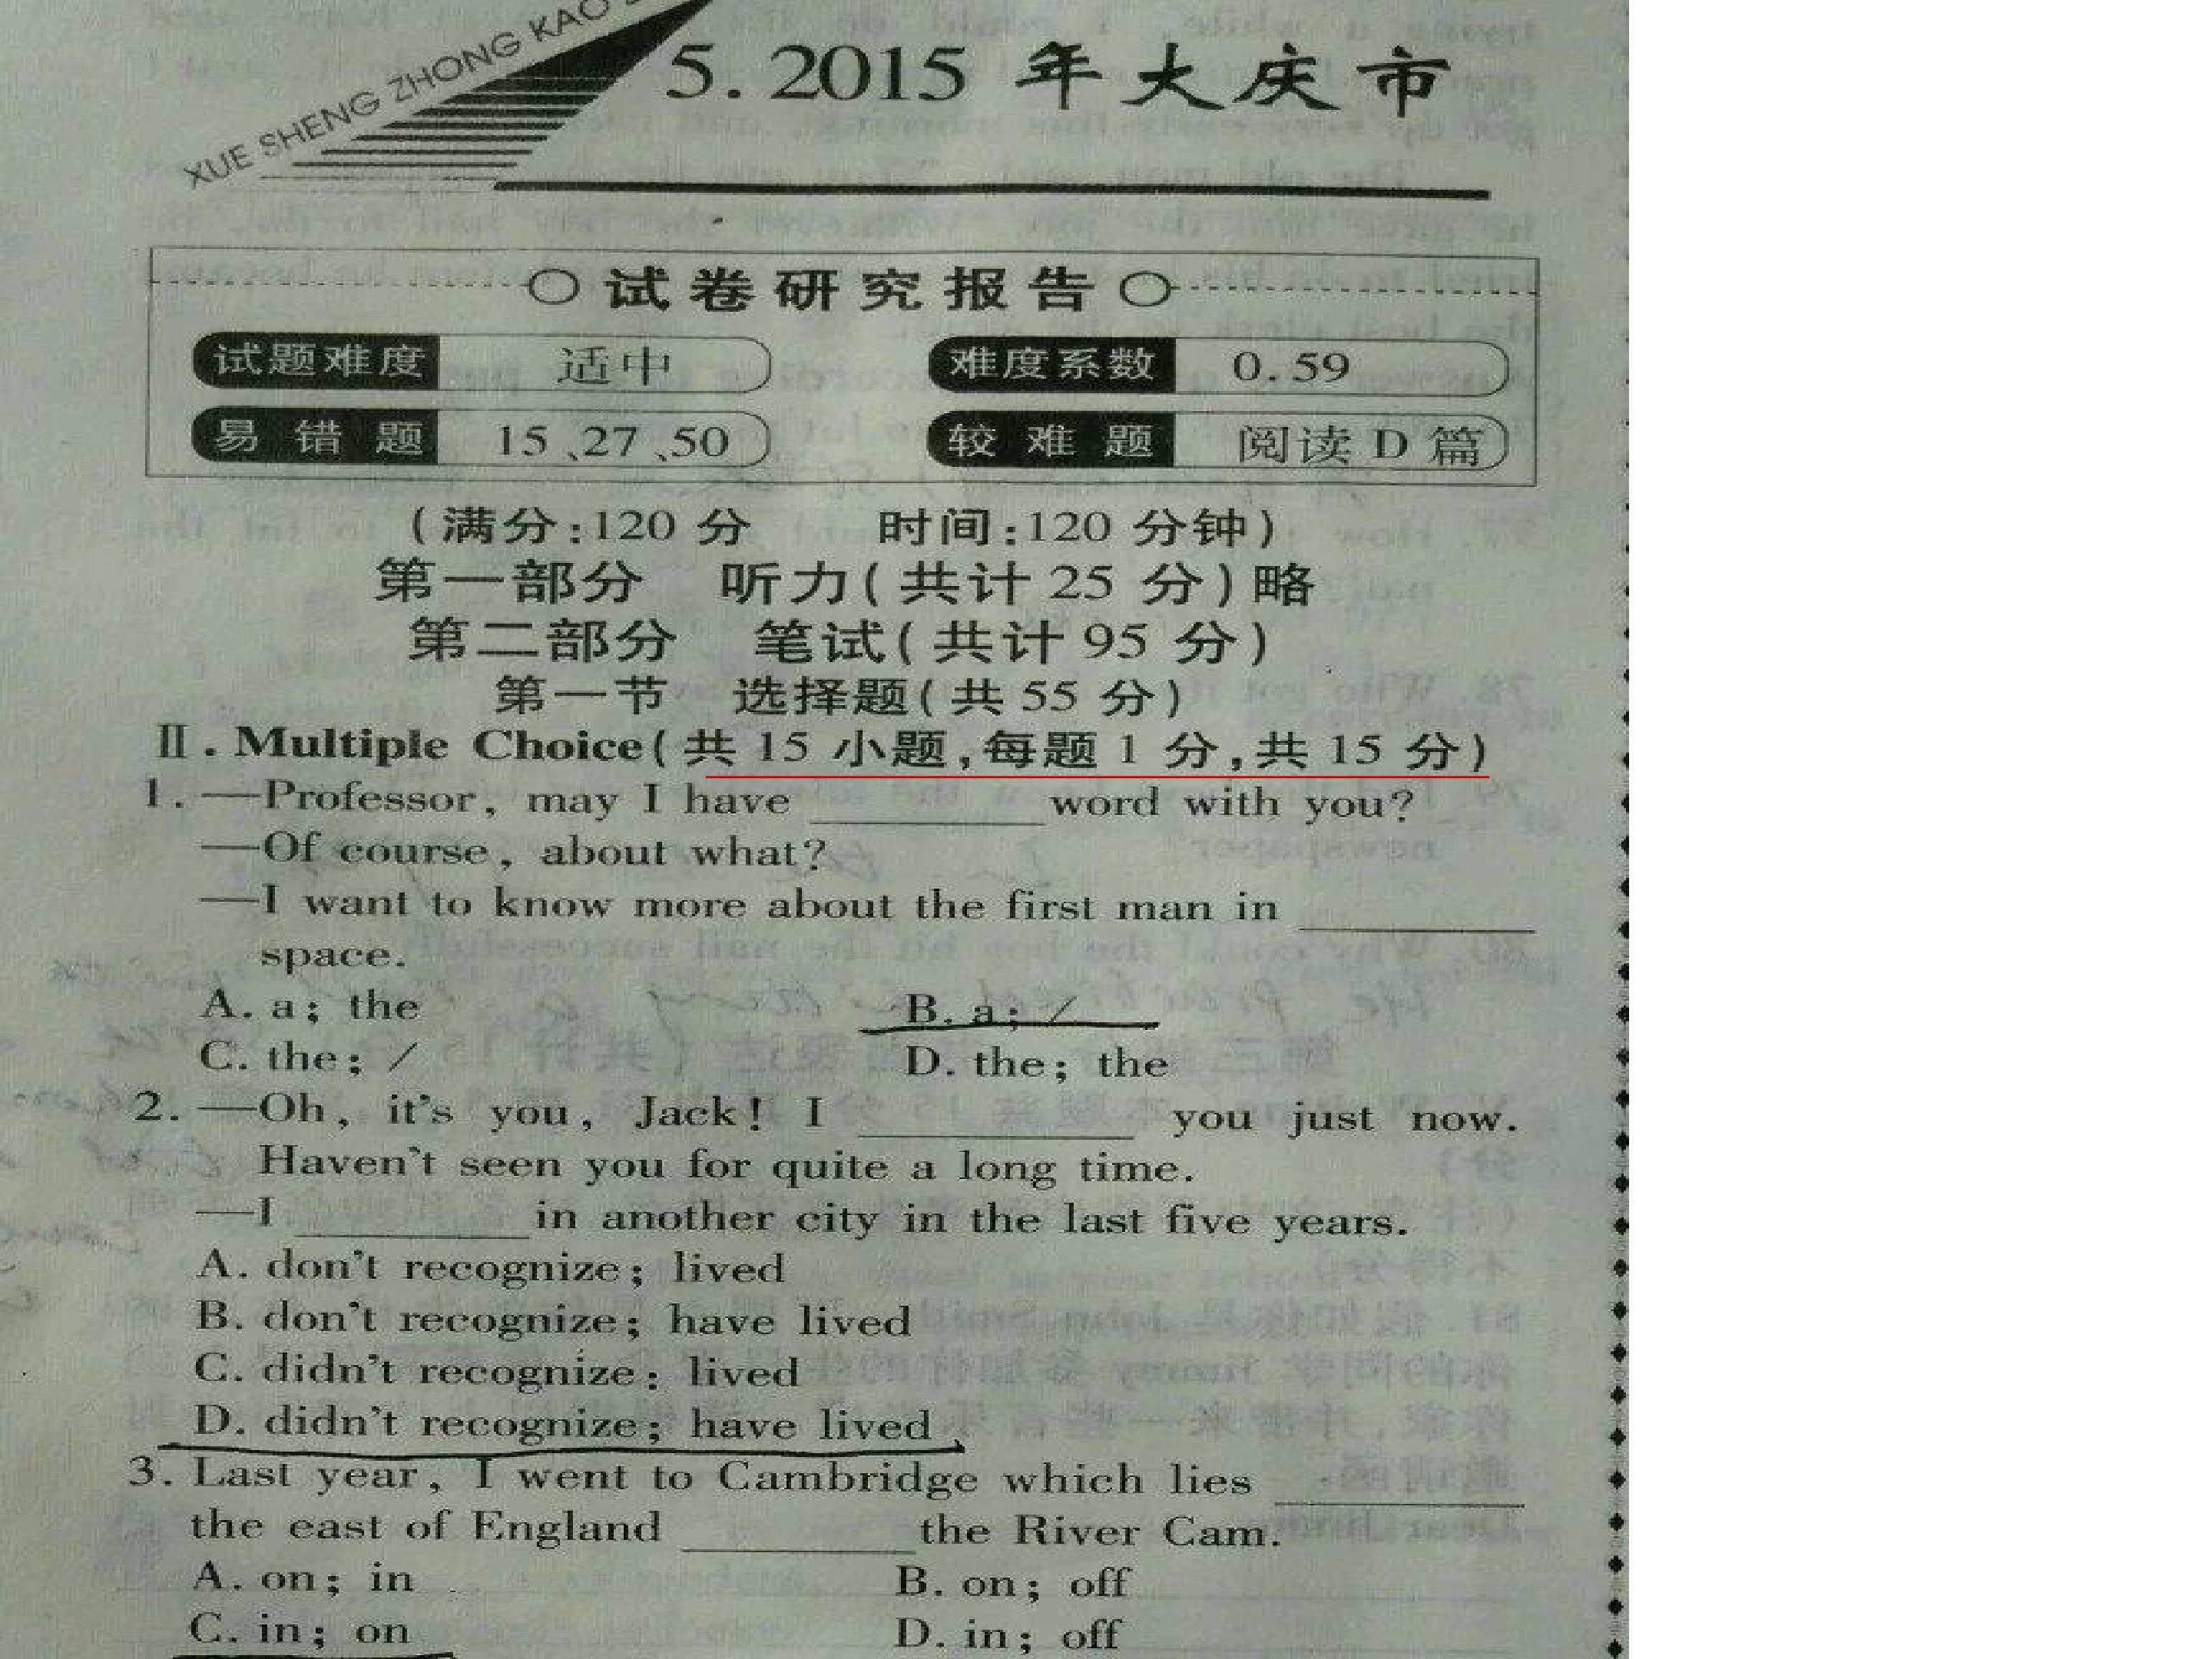 XUE SHENG ZHONG KAO
5. 2015 年大庆市
试卷研究报告
试题难度 适中 难度系数 0.59
易错题 15、27、50 较难题 阅读 D 篇
(满分:120 分 时间:120 分钟)
第一部分 听力(共计 25 分)略
第二部分 笔试(共计 95 分)
第一节 选择题(共 55 分)
Ⅱ. Multiple Choice(共 15 小题,每题 1 分,共 15 分)
1. —Professor, may I have ________ word with you?
—Of course, about what?
—I want to know more about the first man in ________
space.
A. a; the B. a; /
C. the; / D. the; the
2. —Oh, it's you, Jack! I ________ you just now.
Haven't seen you for quite a long time.
—I ________ in another city in the last five years.
A. don't recognize; lived
B. don't recognize; have lived
C. didn't recognize; lived
D. didn't recognize; have lived
3. Last year, I went to Cambridge which lies ________
the east of England ________ the River Cam.
A. on; in B. on; off
C. in; on D. in; off